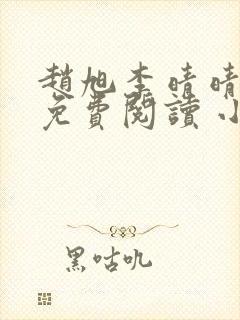 趙旭李晴晴
免費閱讀小
黑咕吼